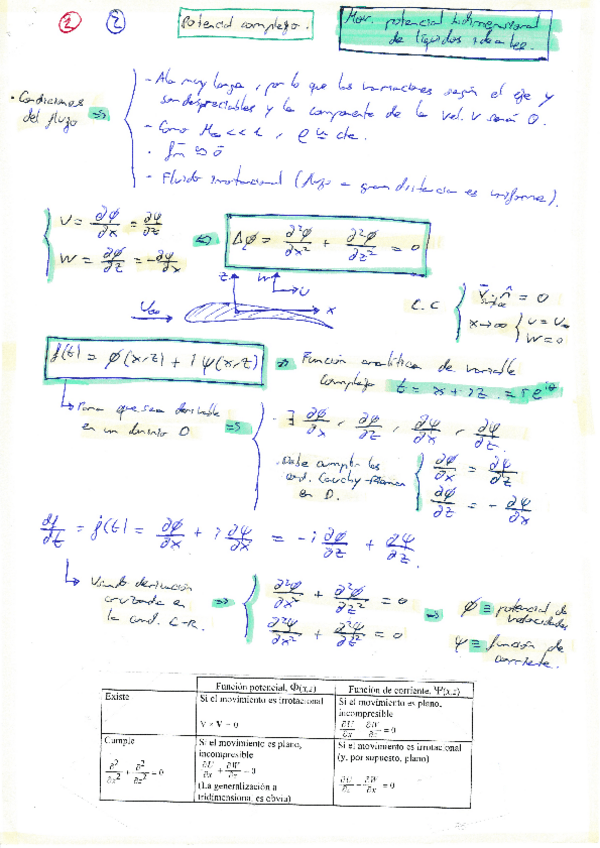 2 2 Potencial complejo. Mov. potencial bidimensional
de líquidos ideales.
- Ala muy larga, por lo que las variaciones según el eje y
son despreciables y la componente de la vel. V será 0.
• Condiciones
del flujo ⇒
- Como M∞ << 1, ρ ≅ cte.
- f̄m ≅ ō
- Fluido irrotacional (flujo a gran distancia es uniforme).
U = ∂φ/∂x = ∂ψ/∂z
W = ∂φ/∂z = -∂ψ/∂x
⇔ Δφ = ∂²φ/∂x² + ∂²φ/∂z² = 0
z W U x
U∞
C.C
V̄ · n̂ = 0
x→∞ { U = U∞
W = 0
f(t) = φ(x,z) + i ψ(x,z) ⇒ Función analítica de variable
compleja t = x + iz = r e^iθ
Para que sea derivable
en un dominio D ⇒
· ∃ ∂φ/∂x, ∂φ/∂z, ∂ψ/∂x, ∂ψ/∂z
· Debe cumplir las
cond. Cauchy-Riemann
en D.
∂φ/∂x = ∂ψ/∂z
∂φ/∂z = - ∂ψ/∂x
df/dt = f(t) = ∂φ/∂x + i ∂ψ/∂x = -i ∂φ/∂z + ∂ψ/∂z.
Usando derivación
cruzada en
la cond. C-R.
⇒
∂²φ/∂x² + ∂²φ/∂z² = 0
∂²ψ/∂x² + ∂²ψ/∂z² = 0
⇒ φ ≡ potencial de
velocidades
ψ ≡ función de
corriente.
Función potencial, Φ(x,z) Función de corriente, Ψ(x,z)
Existe
Si el movimiento es irrotacional
∇ × V = 0
Si el movimiento es plano,
incompresible
∂U/∂x + ∂W/∂z = 0
Cumple
∂²/∂x² + ∂²/∂z² = 0
Si el movimiento es plano,
incompresible
∂U/∂x + ∂W/∂z = 0
(La generalización a
tridimensional es obvia)
Si el movimiento es irrotacional
(y, por supuesto, plano)
∂U/∂z - ∂W/∂x = 0